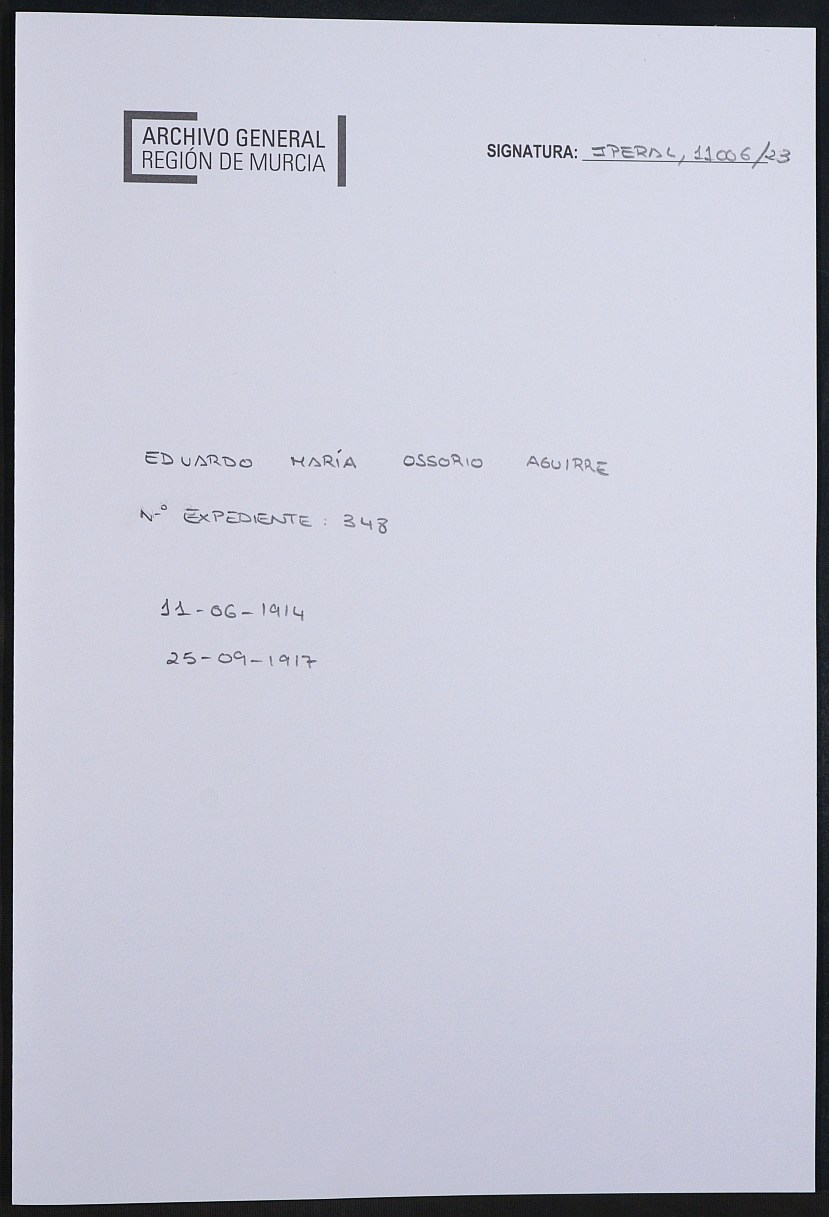 ARCHIVO GENERAL
REGIÓN DE MURCIA
SIGNATURA: IPERAL, 11006/23
EDUARDO MARÍA OSSORIO AGUIRRE
N-º EXPEDIENTE : 348
11-06-1914
25-09-1917